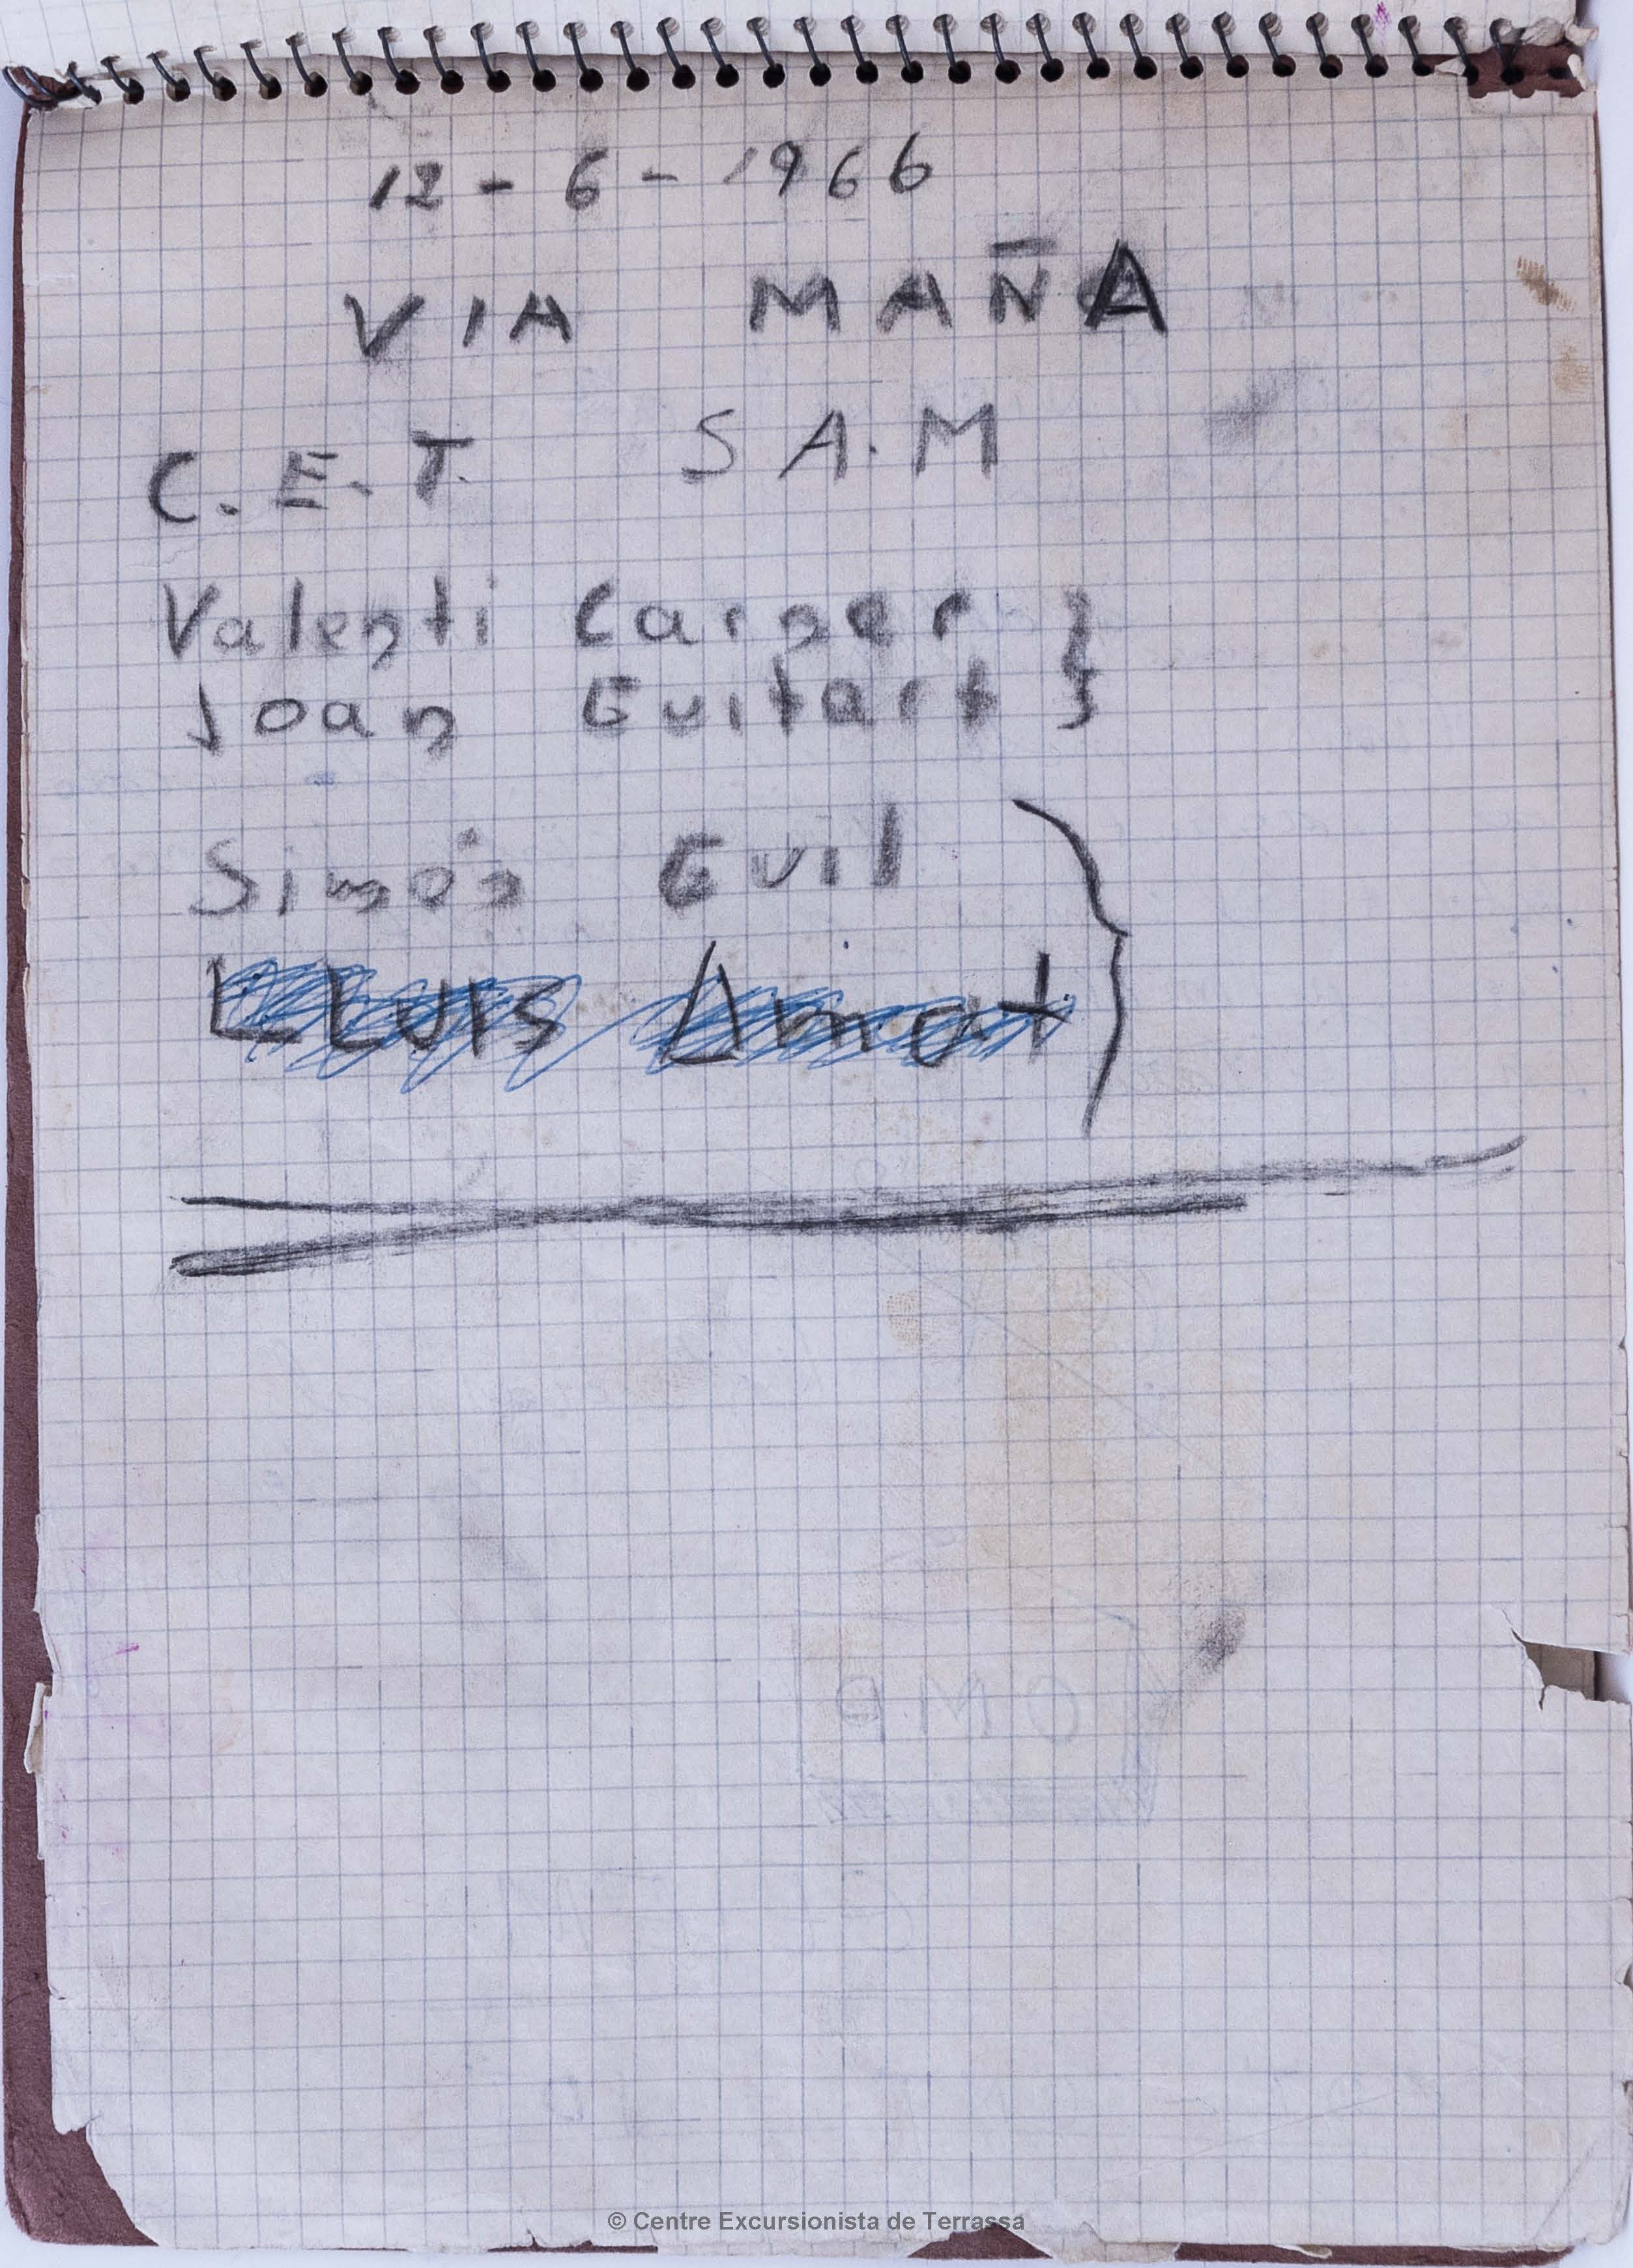 12 - 6 - 1966
VIA MAÑA
C.E.T. S A.M
Valenti Carner }
Joan Guitart }
Simón Guil }
LLuis Amat
© Centre Excursionista de Terrassa